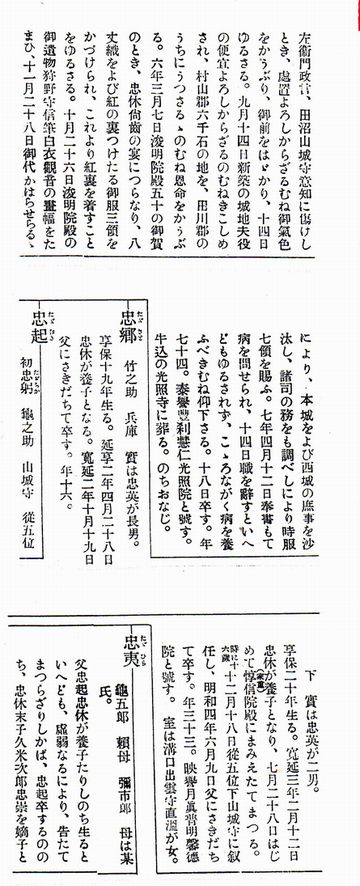 左衞門政言、田沼山城守意知に傷けし
とき、處置よろしからざるむね御氣色
をかうぶり、御前をはゞかり、十四日
ゆるさる。九月十四日新築の城地夫役
の便宜よろしからざるのむねきこしめ
され、村山郡六千石の地を、田川郡の
うちにうつさるゝのむね恩命をかうぶ
る。六年三月七日浚明院殿五十の御賀
のとき、忠休倘齒の宴につらなり、八
丈織をよび紅の裏つけたる御服三領を
かづけられ、これより紅裏を着すこと
をゆるさる。十月二十六日浚明院殿の
御遺物狩野守信筆白衣觀音の畫幅をた
まひ、十一月二十八日御代かはらせらるゝ
により、本城をよび西城の庶事を沙
汰し、諸司の務をも調べしにより時服
七領を賜ふ。七年四月十二日奉書もて
病を問せられ、十四日職を辭すといへ
どもゆるされず、こゝろながく病を養
ふべきむね仰下さる。十八日卒す。年
七十四。泰譽豐刹慧仁光照院と號す。
牛込の光照寺に葬る。のちおなじ。
忠郷 たゞさと
竹之助 兵庫 實は忠英が長男。
享保十九年生る。延享二年四月二十八日
忠休が養子となる。寬延二年十月十九日
父にさきだちて卒す。年十六。
忠起 たゞおき
初忠躬 たゞちか 龜之助 山城守 從五位
下 實は忠英が二男。
享保二十年生る。寬延三年二月十二日
忠休が養子となり、七月二十八日はじ
めて惇信院殿(家重)にまみえたてまつる。
時に十六歳 十二月十八日從五位下山城守に叙
任し、明和四年六月九日父にさきだち
て卒す。年三十三。映譽月眞普明馨德
院と號す。 室は溝口出雲守直溫が女。
忠夷 たゞひら
龜五郎 賴母 彌市郎 母は某
氏。
父忠起忠休が養子たりしのち生ると
いへども、虛弱なるにより、告たて
まつらざりしかば、忠起卒するのの
ち、忠休末子久米次郎忠崇を嫡子と